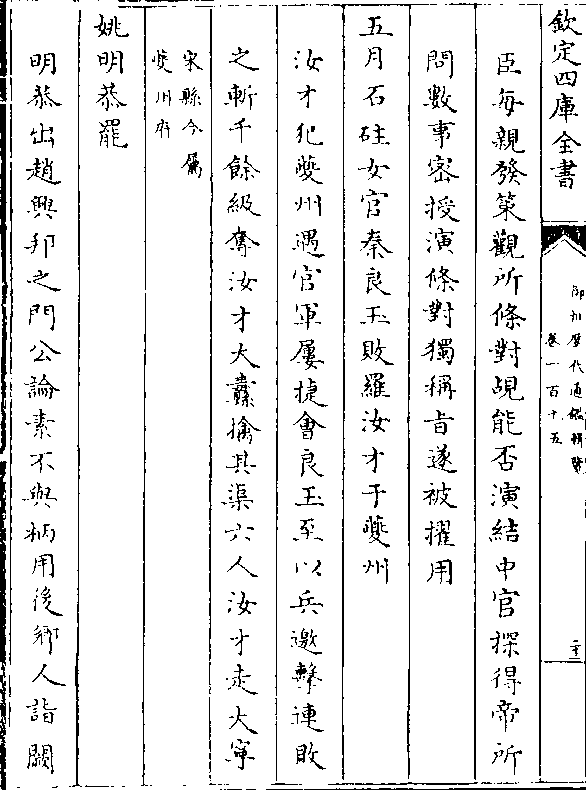 欽定四庫全書
御批歷代通鑑輯覽
卷一百十五
二十
臣每親發策觀所條對覘能否演結中官探得帝所
問數事密授演條對獨稱旨遂被擢用
五月石砫女官秦良玉敗羅汝才于夔州
汝才犯夔州遇官軍屢捷會良玉至以兵邀擊連敗
之斬千餘級奪汝才大纛擒其渠六人汝才走大寧
宋縣今屬
夔州府
姚明恭罷
明恭出趙興邦之門公論素不與柄用後鄉人詣闕